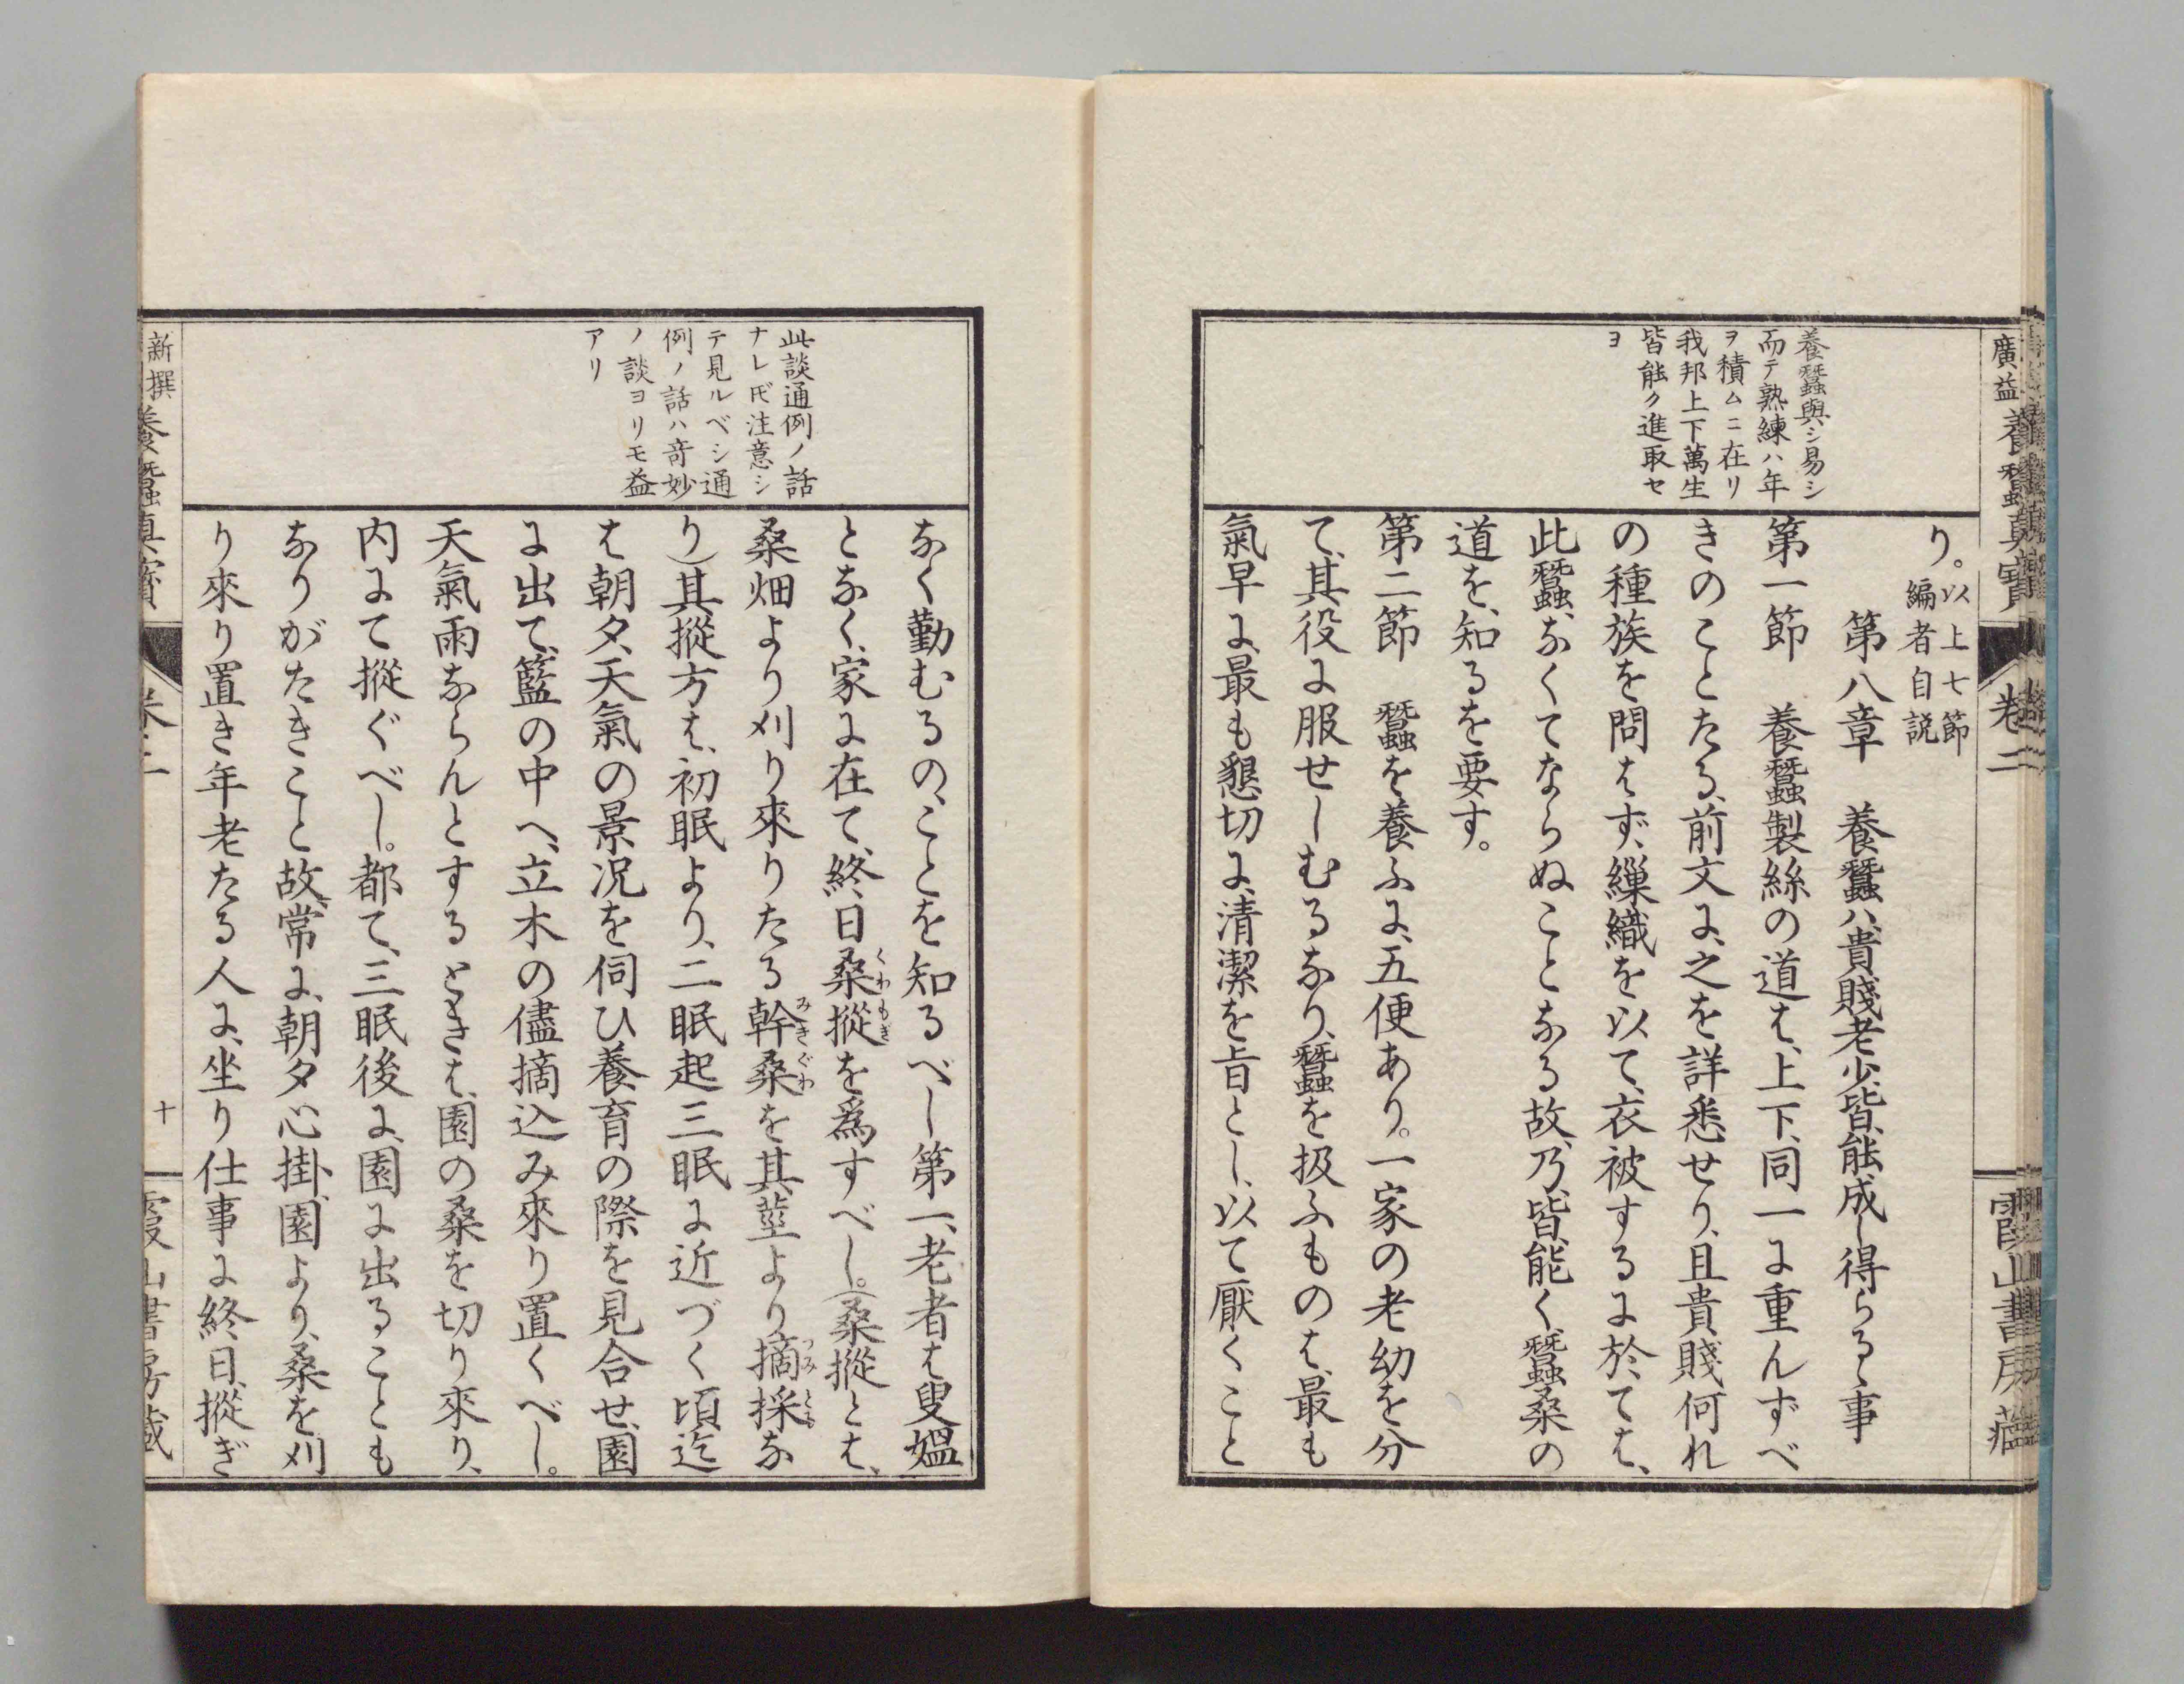 廣益養蠶真寶 卷二 霞山書房藏
養蠶與シ易シ
而テ熟練ハ年
ヲ積ムニ在リ
我邦上下萬生
皆能ク進取セ
ヨ
り。以上七節
編者自説
第八章 養蠶ハ、貴賤老少、皆、能、成し得らるゝ事
第一節 養蠶製絲の道は、上下、同一に重んずべ
きのことたる、前文に、之を詳悉せり、且貴賤何れ
の種族を問はず、繅織を以て、衣被するに於ては、
此蠶、なくてならぬことなる故、乃、皆、能く、蠶桑の
道を、知るを要す。
第二節 蠶を養ふに、五便あり。一家の老幼を分
て、其役に服せしむるなり、蠶を扱ふものは、最も
氣早に、最も懇切に、清潔を旨とし、以て厭くこと
此談通例ノ話
ナレ𪜈注意シ
テ見ルベシ通
例ノ話ハ奇妙
ノ談ヨリモ益
アリ
なく勤むるの、ことを知るべし第一、老者は叟媼
となく、家に在て、終日桑摐を為すべし。(桑摐とは、
桑畑より刈り來りたる幹桑を其莖より摘採な
り)其摐方は、初眠より、二眠起三眠に近づく頃迄
は朝夕、天氣の景况を伺ひ養育の際を見合せ、園
に出て、籃の中へ、立木の儘摘込み來り置くべし。
天氣雨ならんとするときは、園の桑を切り來り、
内にて摐ぐべし。都て、三眠後に、園に出ることも
なりがたきこと故、常に、朝夕心掛、園より、桑を刈
り來り置き年老たる人に、坐り仕事に終日、摐ぎ
新撰養蠶真寶 卷二 十 霞山書房藏